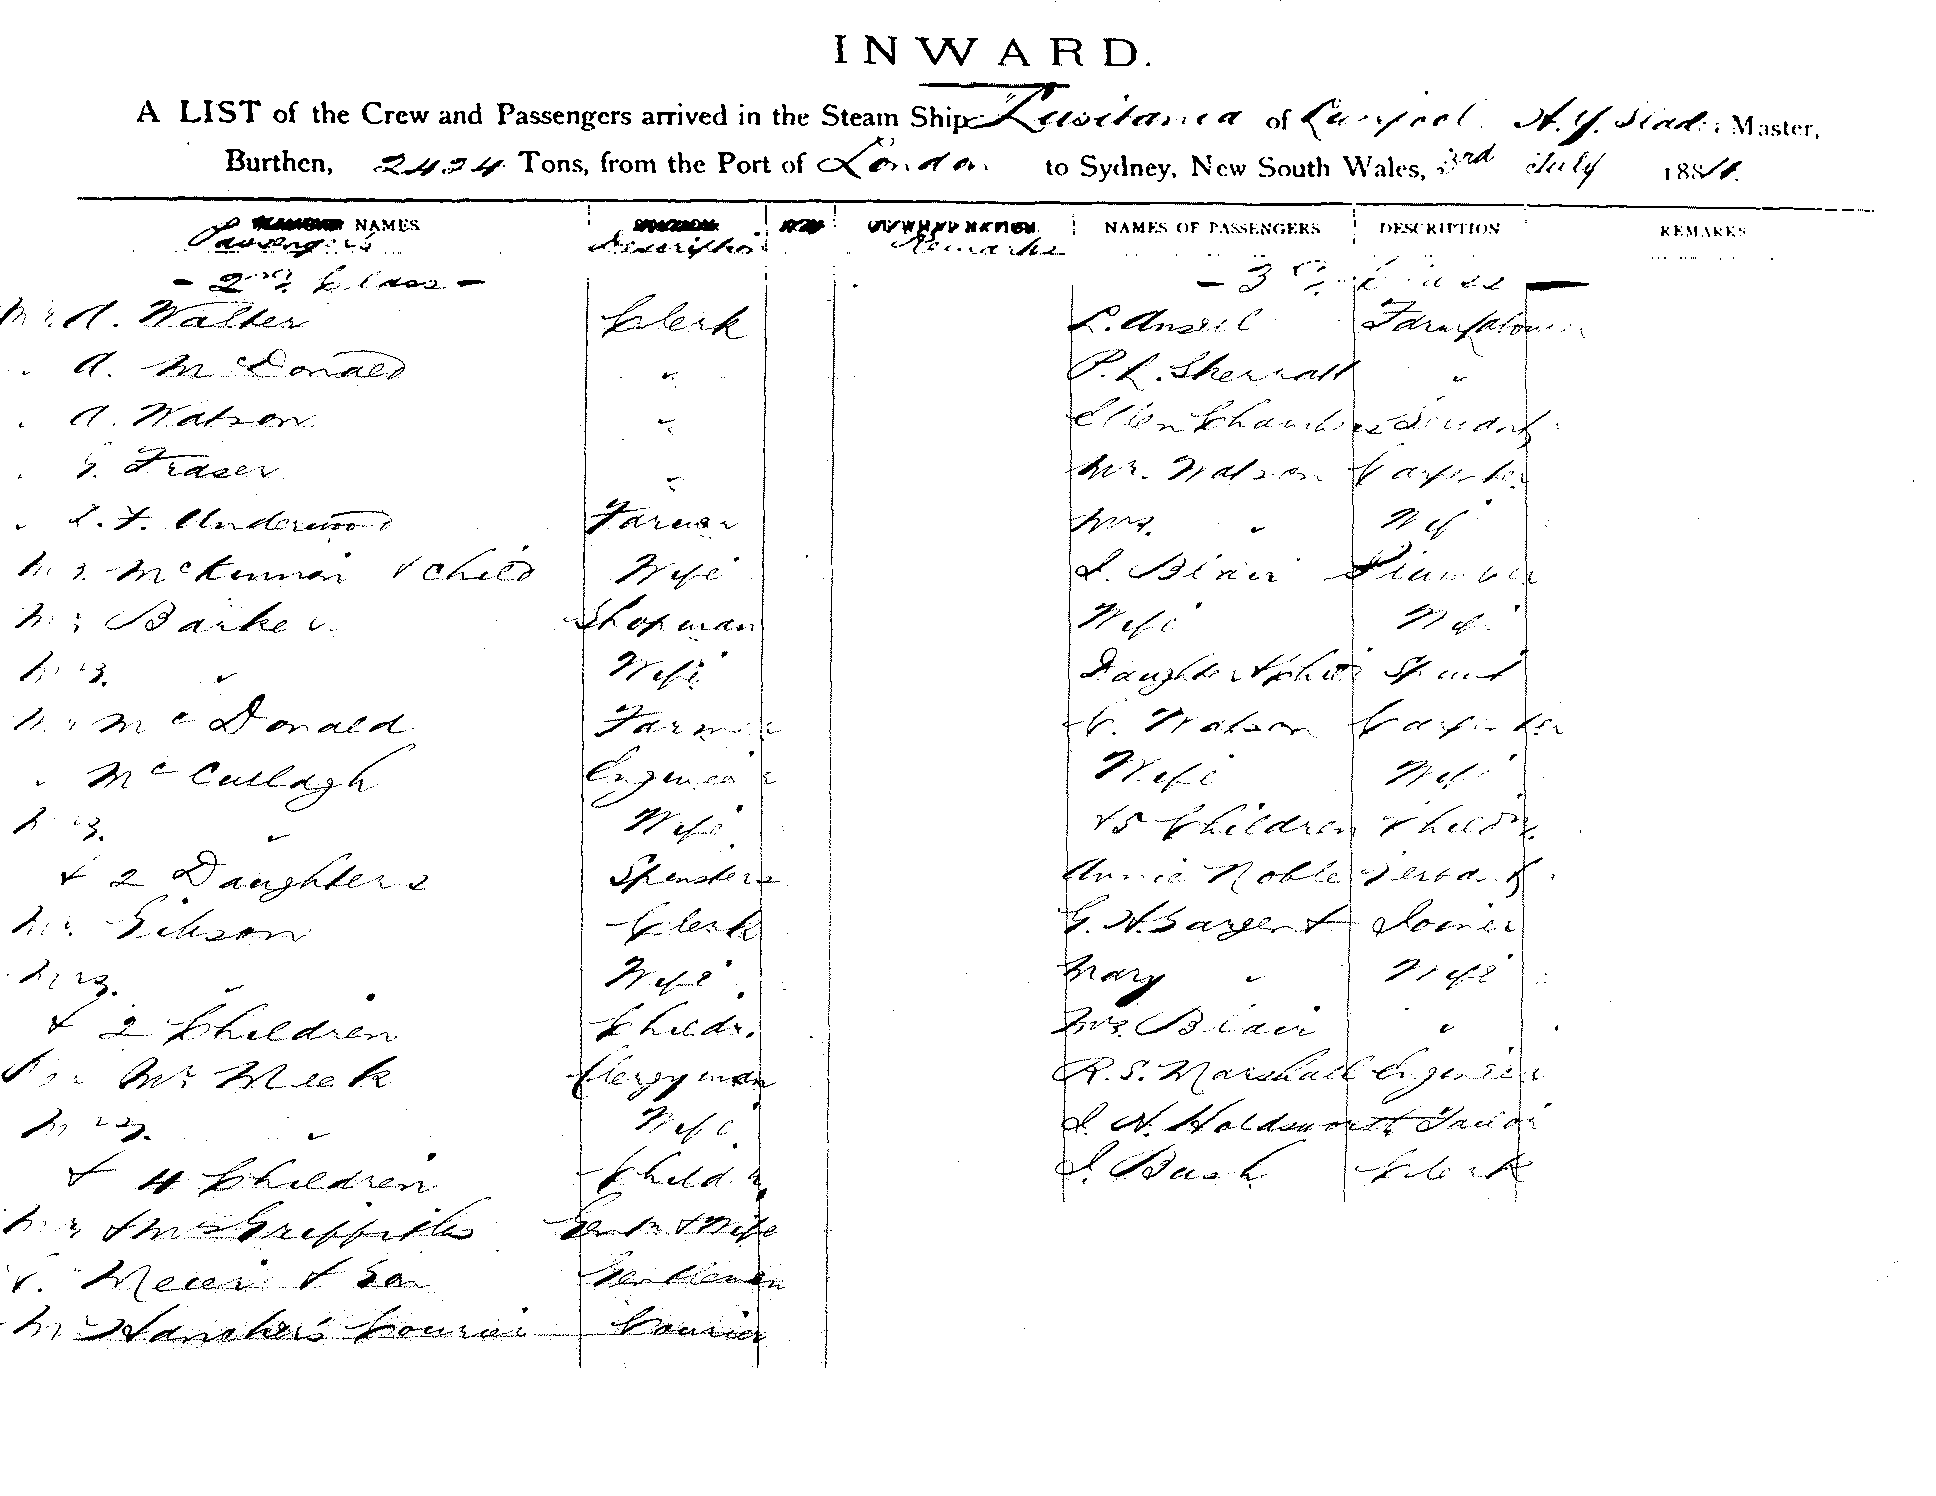 INWARD.
A LIST of the Crew and Passengers arrived in the Steam Ship "Lusitania of Liverpool. A. Y. Master,
Burthen, 2424 Tons, from the Port of London to Sydney, New South Wales, 3rd July 188
Passengers NAMES Description Remarks NAMES OF PASSENGERS DESCRIPTION REMARKS
- 2nd Class -
Mr. A. Walter Clerk
" A. McDonald "
" A. Watson "
" G. Fraser "
" Underwood Farmer
Mrs. McKinnon & Child Wife
Mr Barker Shopman
Mrs. " Wife
Mr McDonald Farmer
" McCullagh Engineer
Mrs. " Wife
& 2 Daughters Spinsters
Mr. Gibson Clerk
Mrs. " Wife
& 2 Children Childn.
Mr Meek Clergyman
Mrs. " Wife
& 4 Children Childn.
Mr & Mrs Griffiths Gentn & Wife
& Son Gentlemen
Mr Courier Courier
- 3rd Class -
L. Ansell
P. L. Sherratt "
Ellen Chambers Servant
Mr. Watson Carpenter
Mrs. " Wife
J. Blair Plumber
Wife Wife
Daughter Spinst
C. Watson Carpenter
Wife Wife
& 5 Children Childn.
Annie Noble Servant
G. H. Sargent Joiner
Mary " Wife
Mrs. Blair "
R. S. Marshall Engineer
J. H. Holdsworth Tailor
J. Bush Clerk